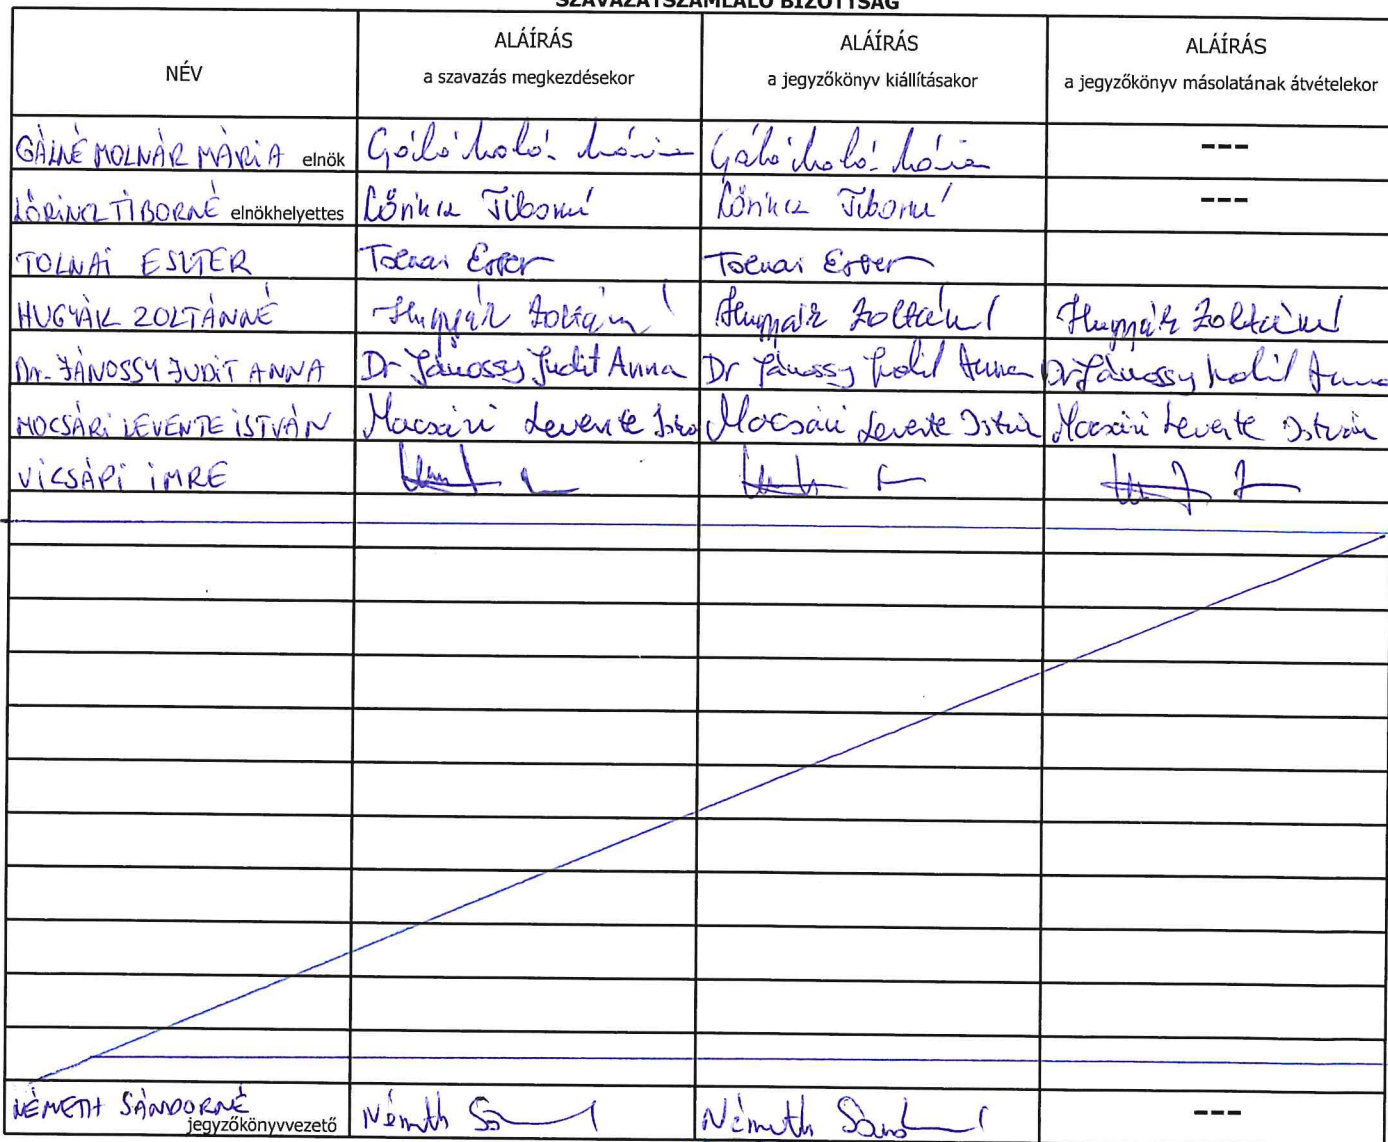 SZAVAZATSZÁMLÁLÓ BIZOTTSÁG
NÉV
ALÁÍRÁS
a szavazás megkezdésekor
ALÁÍRÁS
a jegyzőkönyv kiállításakor
ALÁÍRÁS
a jegyzőkönyv másolatának átvételekor
GÁLNÉ MOLNÁR MÁRIA elnök ---
LŐRINCZ TIBORNÉ elnökhelyettes Lőrincz Tiborné Lőrincz Tiborné ---
TOLNAI ESZTER Tolnai Eszter Tolnai Eszter
HUGYÁK ZOLTÁNNÉ Hugyák Zoltánné Hugyák Zoltánné Hugyák Zoltánné
Dr. JÁNOSSY JUDIT ANNA Dr Jánossy Judit Anna Dr Jánossy Judit Anna Dr Jánossy Judit Anna
MOCSÁRI LEVENTE ISTVÁN Mocsári Levente Mocsári Levente István Mocsári Levente István
VICSÁPI IMRE
NÉMETH SÁNDORNÉ jegyzőkönyvvezető Németh Németh ---